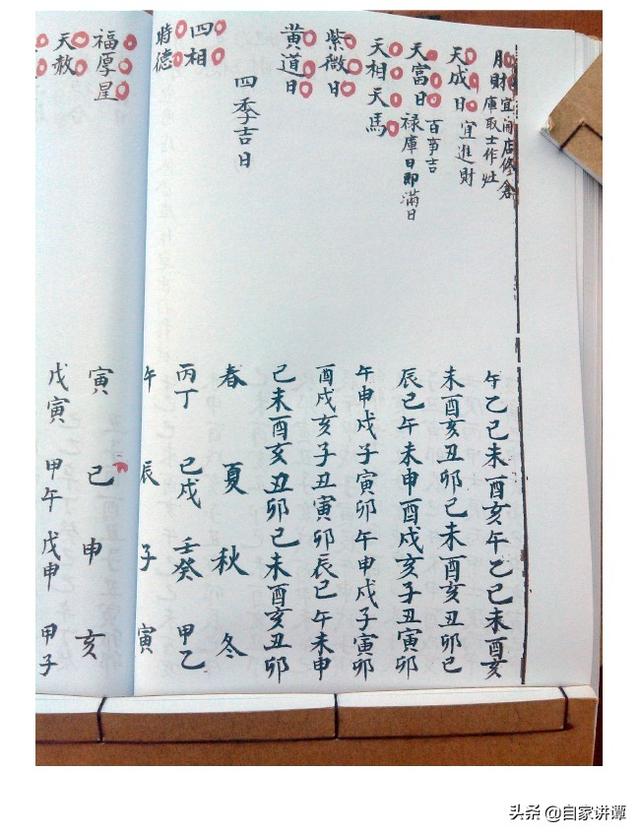 月財 宜開店修倉
庫取士作灶 午乙己未酉亥午乙己未酉亥
天成日 宜進財 未酉亥丑卯巳未酉亥丑卯巳
天富日 百事吉
禄庫日即滿日 辰巳午未申酉戌亥子丑寅卯
天相天馬 午申戌子寅卯午申戌子寅卯
紫微日 酉戌亥子丑寅卯辰巳午未申
黄道日 己未酉亥丑卯己未酉亥丑卯
四季吉日 春 夏 秋 冬
四相 丙丁 己戌 壬癸 甲乙
時德 午 辰 子 寅
福厚星 寅 己 申 亥
天赦 戊寅 甲午 戊申 甲子
头条 @自家讲谭